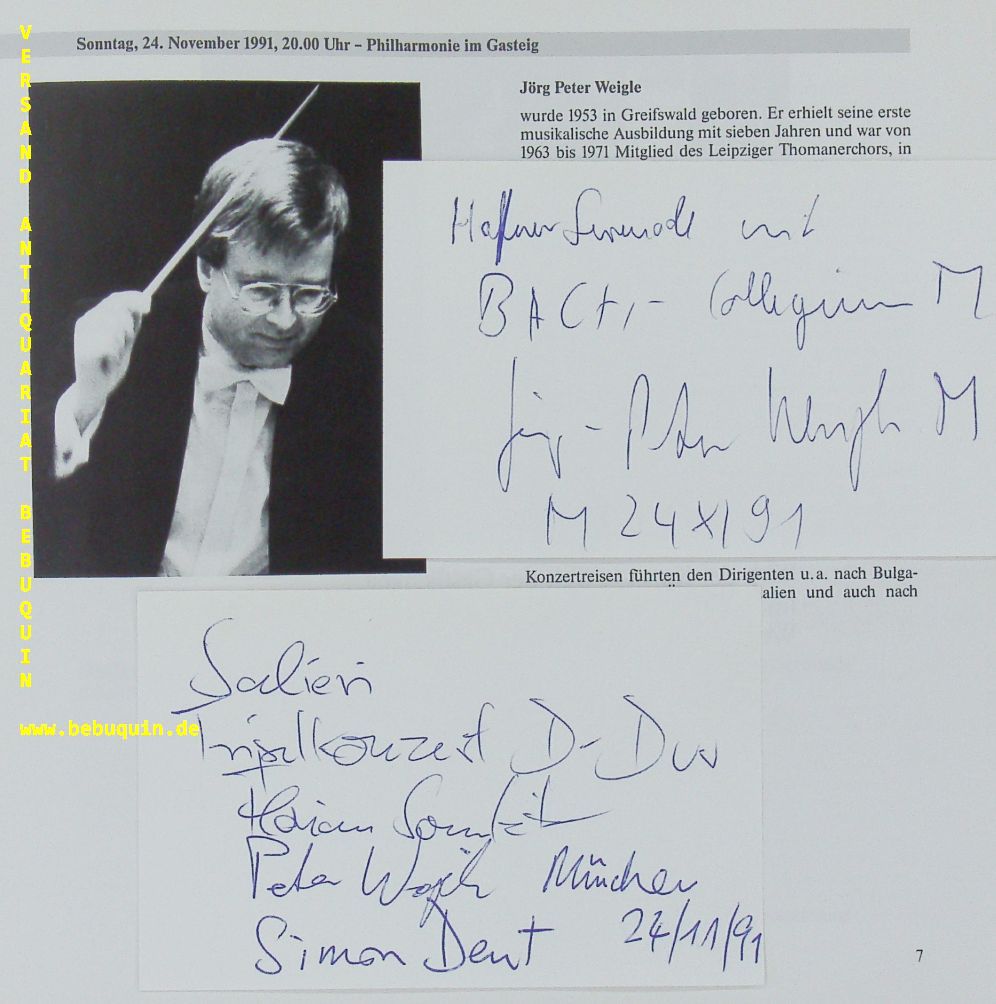 Sonntag, 24. November 1991, 20.00 Uhr – Philharmonie im Gasteig
VERSAND ANTIQUARIAT BEBUQUIN
www.bebuquin.de
Jörg Peter Weigle
wurde 1953 in Greifswald geboren. Er erhielt seine erste
musikalische Ausbildung mit sieben Jahren und war von
1963 bis 1971 Mitglied des Leipziger Thomanerchors, in
Haffner Serenade mit
BACH,- Collegium M
Jörg-Peter Weigle M
M 24 XI 91
Konzertreisen führten den Dirigenten u. a. nach Bulga-
alien und auch nach
Salieri
Tripelkonzert D-Dur
Peter Wöpke München
Simon Dent 24/11/91
7